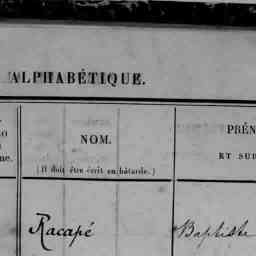 ALPHABÉTIQUE.
NOM.
(Il doit être écrit en bâtarde.)
PRÉN
ET SUR
Racapé
Baptiste